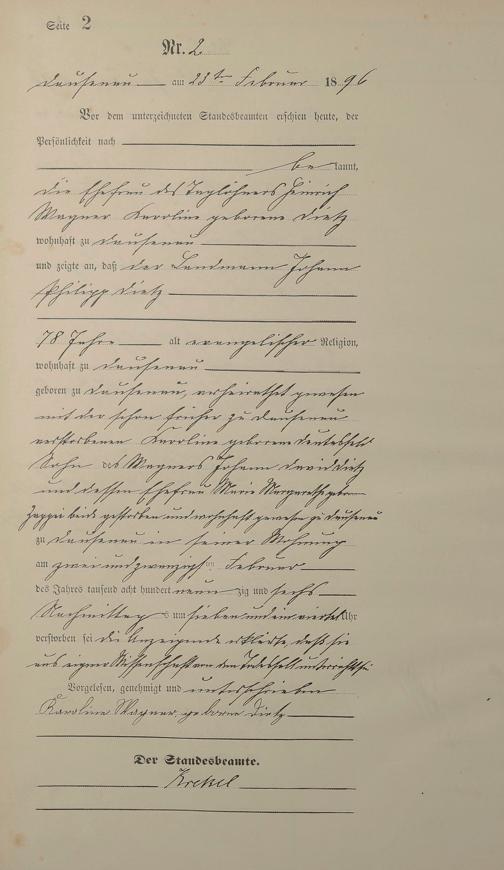 Seite 2
Nr. 2
Dausenau am 23ten Februar 1896
Vor dem unterzeichneten Standesbeamten erschien heute, der
Persönlichkeit nach
bekannt,
die Ehefrau des Taglöhners Heinrich
Wagner Karoline geborene Dietz
wohnhaft zu Dausenau
und zeigte an, daß der Landmann Johann
Philipp Dietz
78 Jahre alt evangelischer Religion,
wohnhaft zu Dausenau
geboren zu Dausenau, verheirathet gewesen
mit der schon früher zu Dausenau
verstorbenen Karoline geborene
Sohn des Wagners Johann David Dietz
und dessen Ehefrau Marie Margarethe
beide gestorben und wohnhaft gewesen zu Dausenau
zu Dausenau in seiner Wohnung
am zwei und zwanzigsten Februar
des Jahres tausend acht hundert neunzig und sechs
Nachmittags um sieben und ein viertel Uhr
verstorben sei die Anzeigende erklärte, daß sie
aus eigener Wissenschaft von dem Todesfall unterrichtet sei
Vorgelesen, genehmigt und unterschrieben
Karoline Wagner geborne Dietz
Der Standesbeamte.
Krekel